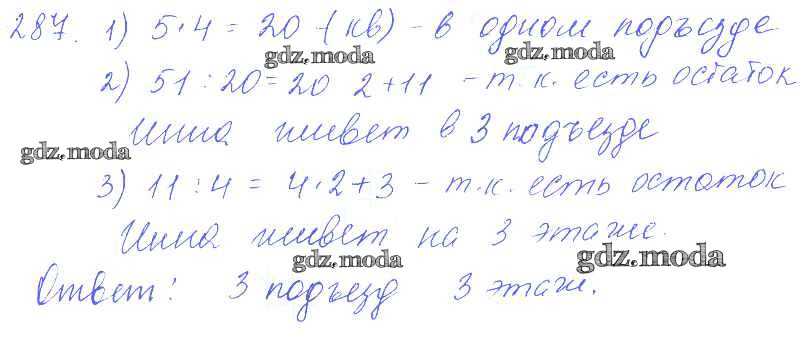 287. 1) 5·4 = 20 (кв) - в одном подъезде
gdz.moda gdz.moda
2) 51 : 20 = 20 2 + 11 - т.к. есть остаток
Инна живет в 3 подъезде
gdz.moda
3) 11 : 4 = 4·2+3 - т.к. есть остаток
Инна живет на 3 этаже.
gdz.moda gdz.moda
Ответ: 3 подъезд 3 этаж.